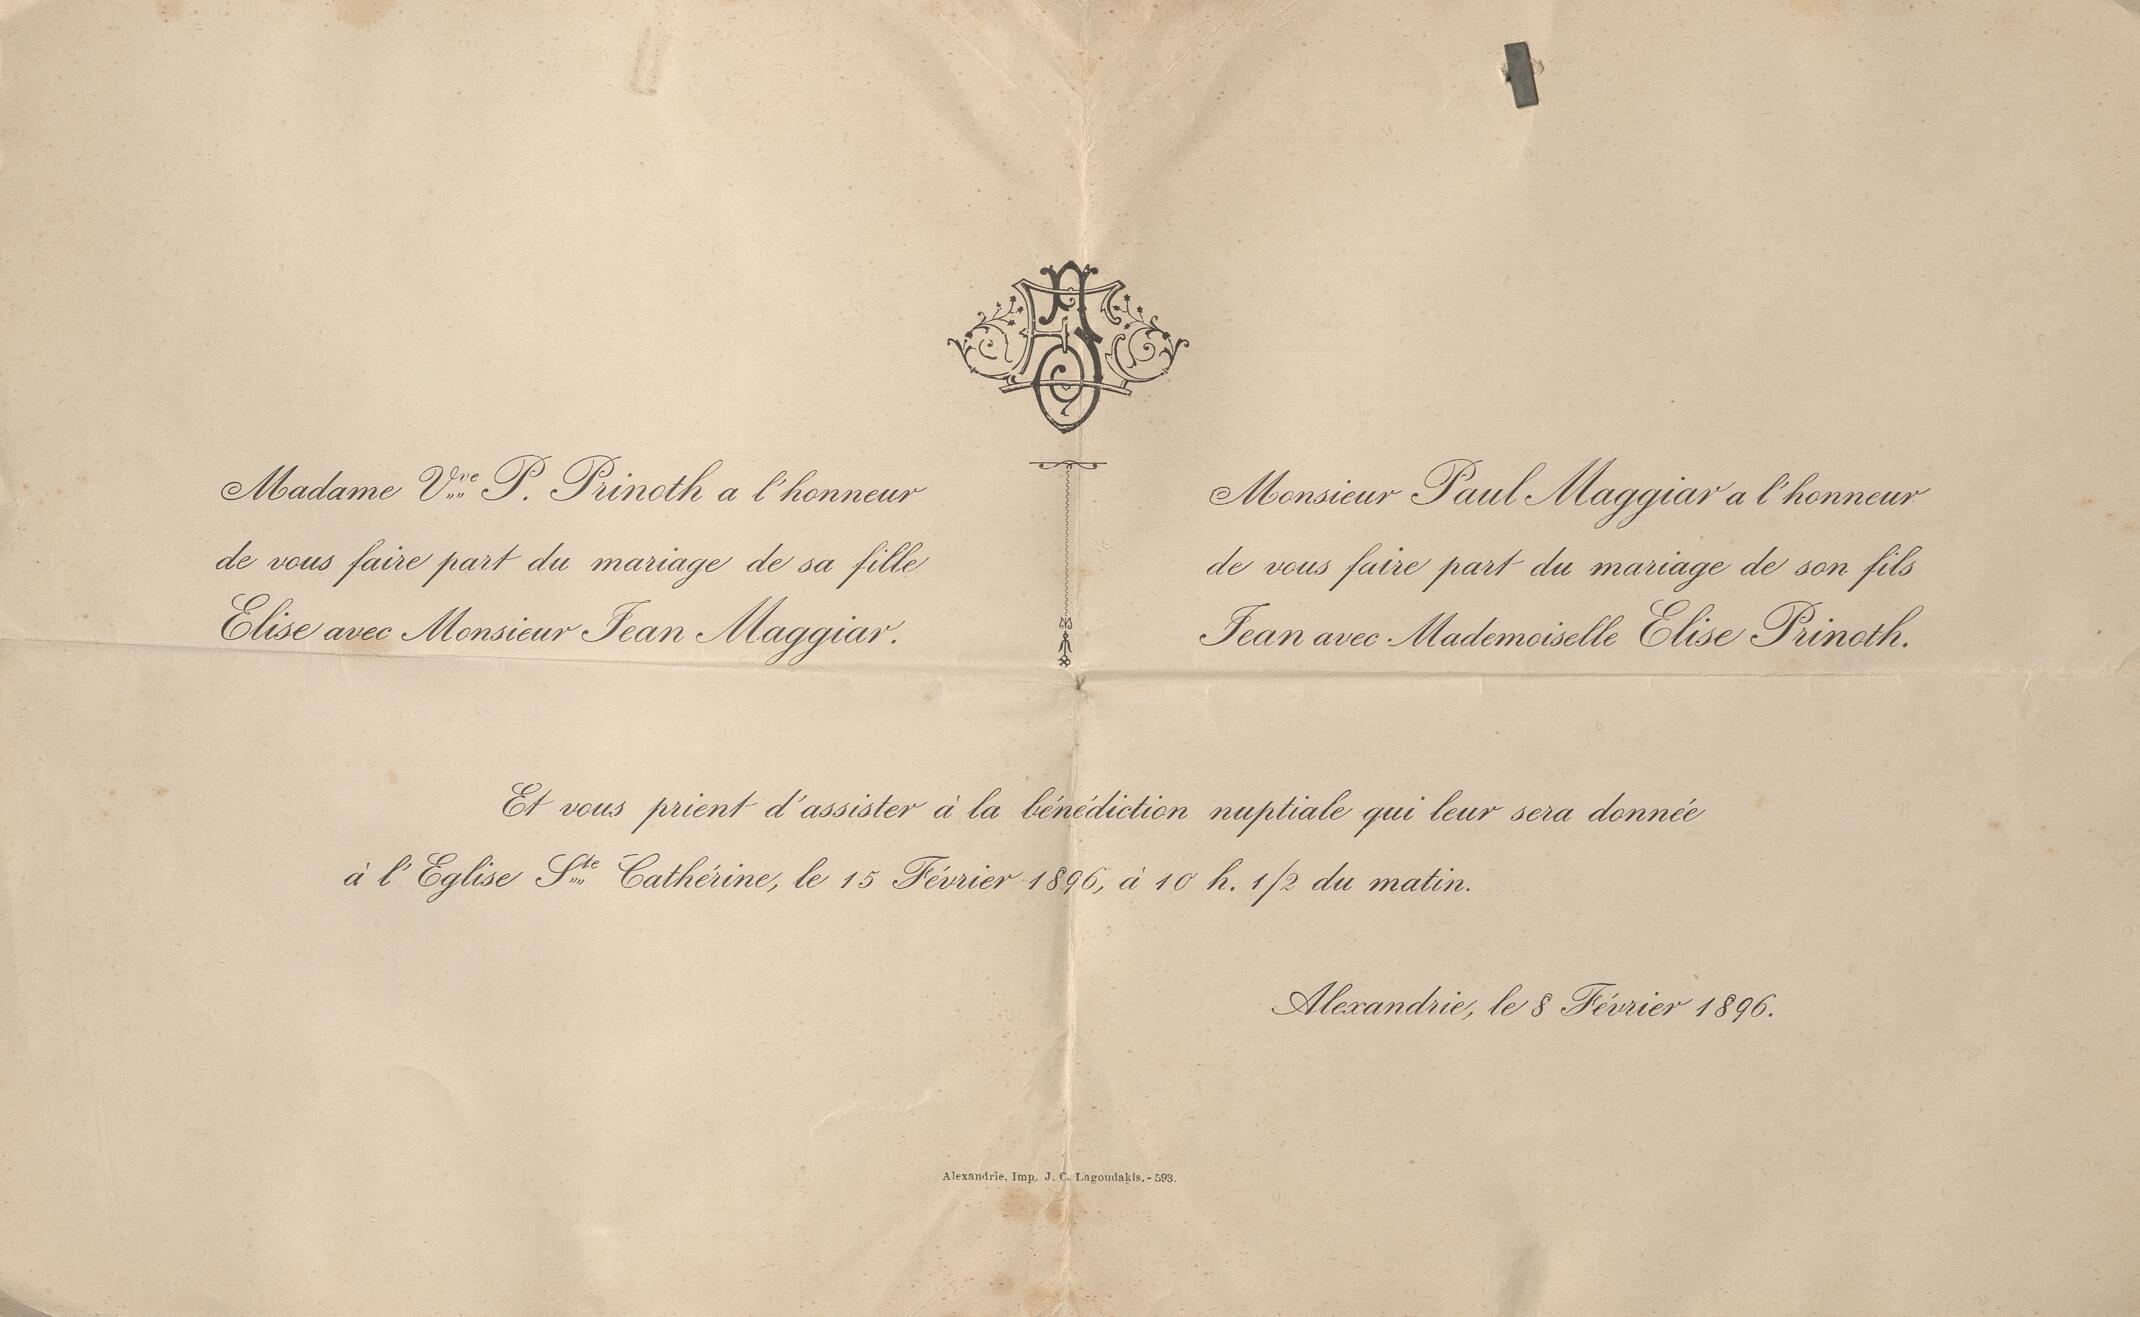 Madame Vve P. Prinoth a l'honneur
de vous faire part du mariage de sa fille
Elise avec Monsieur Jean Maggiar.
Monsieur Paul Maggiar a l'honneur
de vous faire part du mariage de son fils
Jean avec Mademoiselle Elise Prinoth.
Et vous prient d'assister à la bénédiction nuptiale qui leur sera donnée
à l'Eglise Ste Cathérine, le 15 Février 1896, à 10 h. 1/2 du matin.
Alexandrie, le 8 Février 1896.
Alexandrie, Imp. J. C. Lagoudakis. - 593.